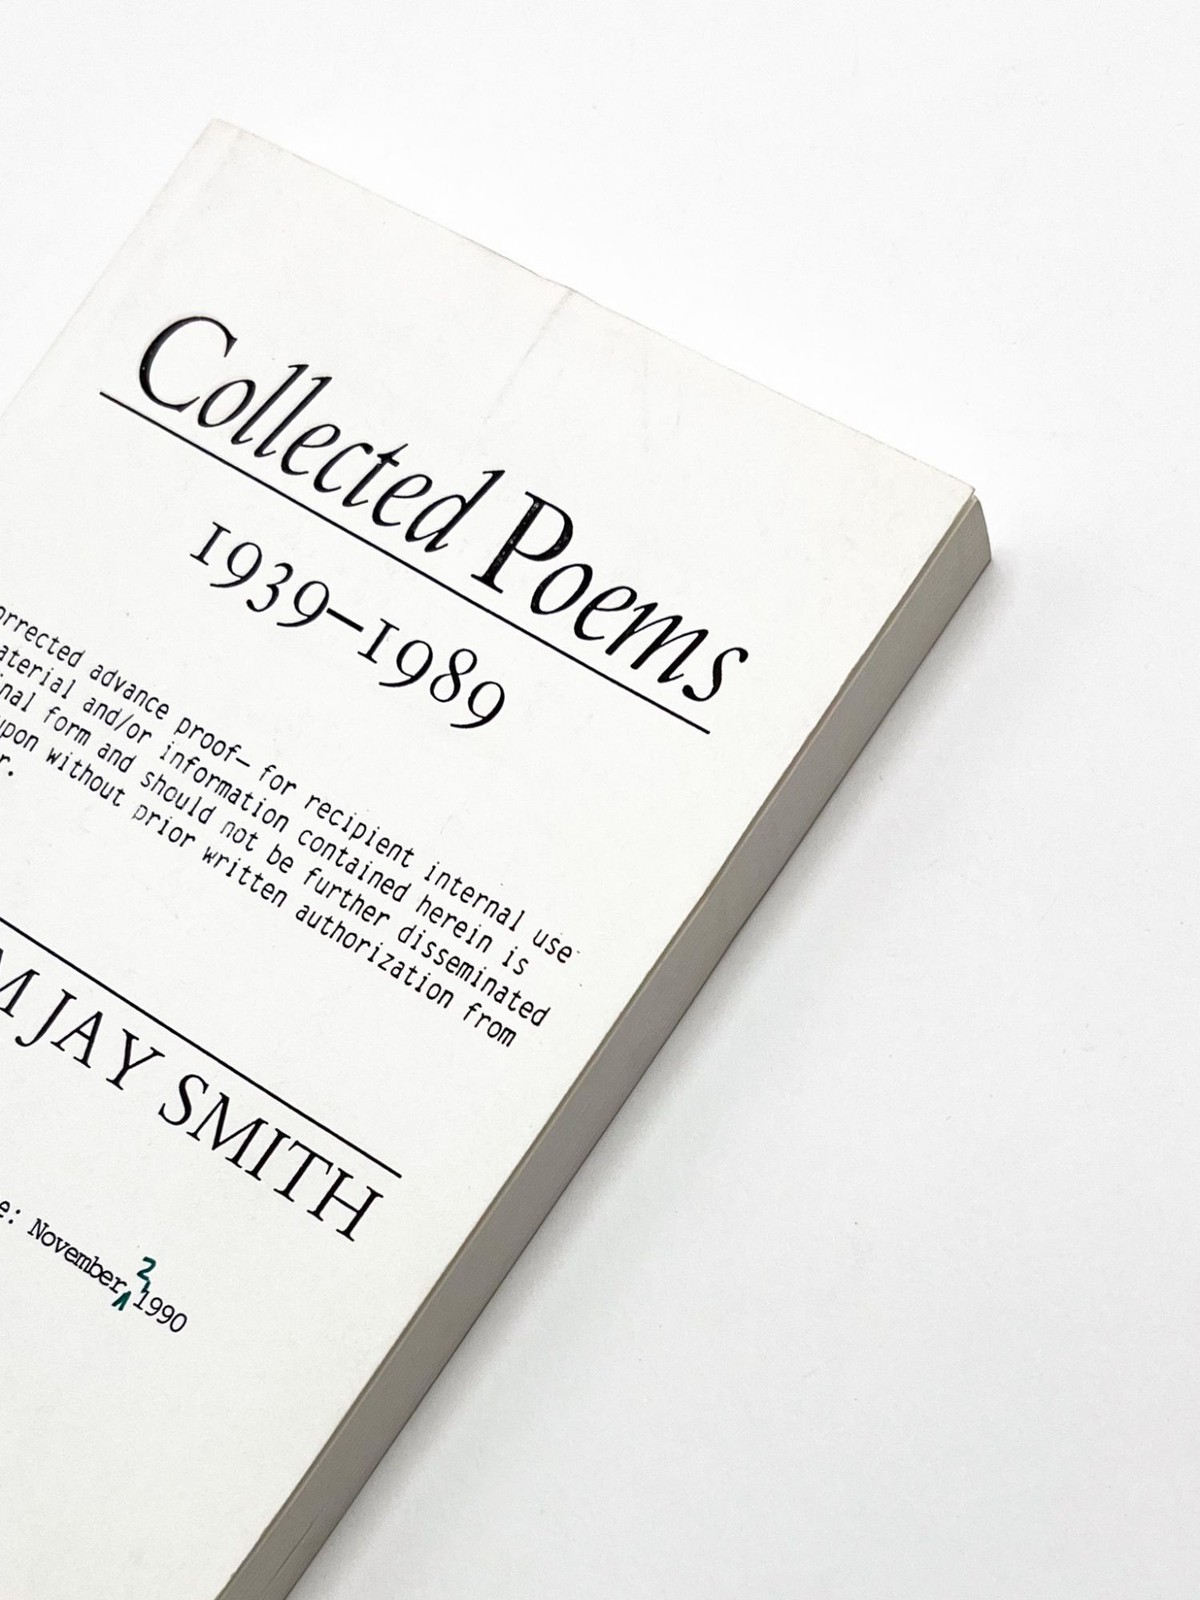 Collected Poems
1939–1989
orrected advance proof— for recipient internal use
aterial and/or information contained herein is
nal form and should not be further disseminated
upon without prior written authorization from
r.
M JAY SMITH
e: November 2, 1990